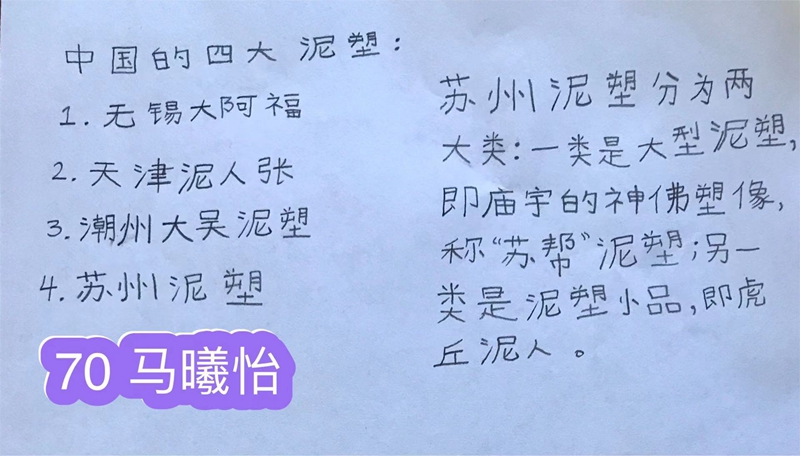 中国的四大泥塑：
1. 无锡大阿福
2. 天津泥人张
3. 潮州大吴泥塑
4. 苏州泥塑
苏州泥塑分为两
大类：一类是大型泥塑，
即庙宇的神佛塑像，
称“苏帮”泥塑；另一
类是泥塑小品，即虎
丘泥人。
70 马曦怡